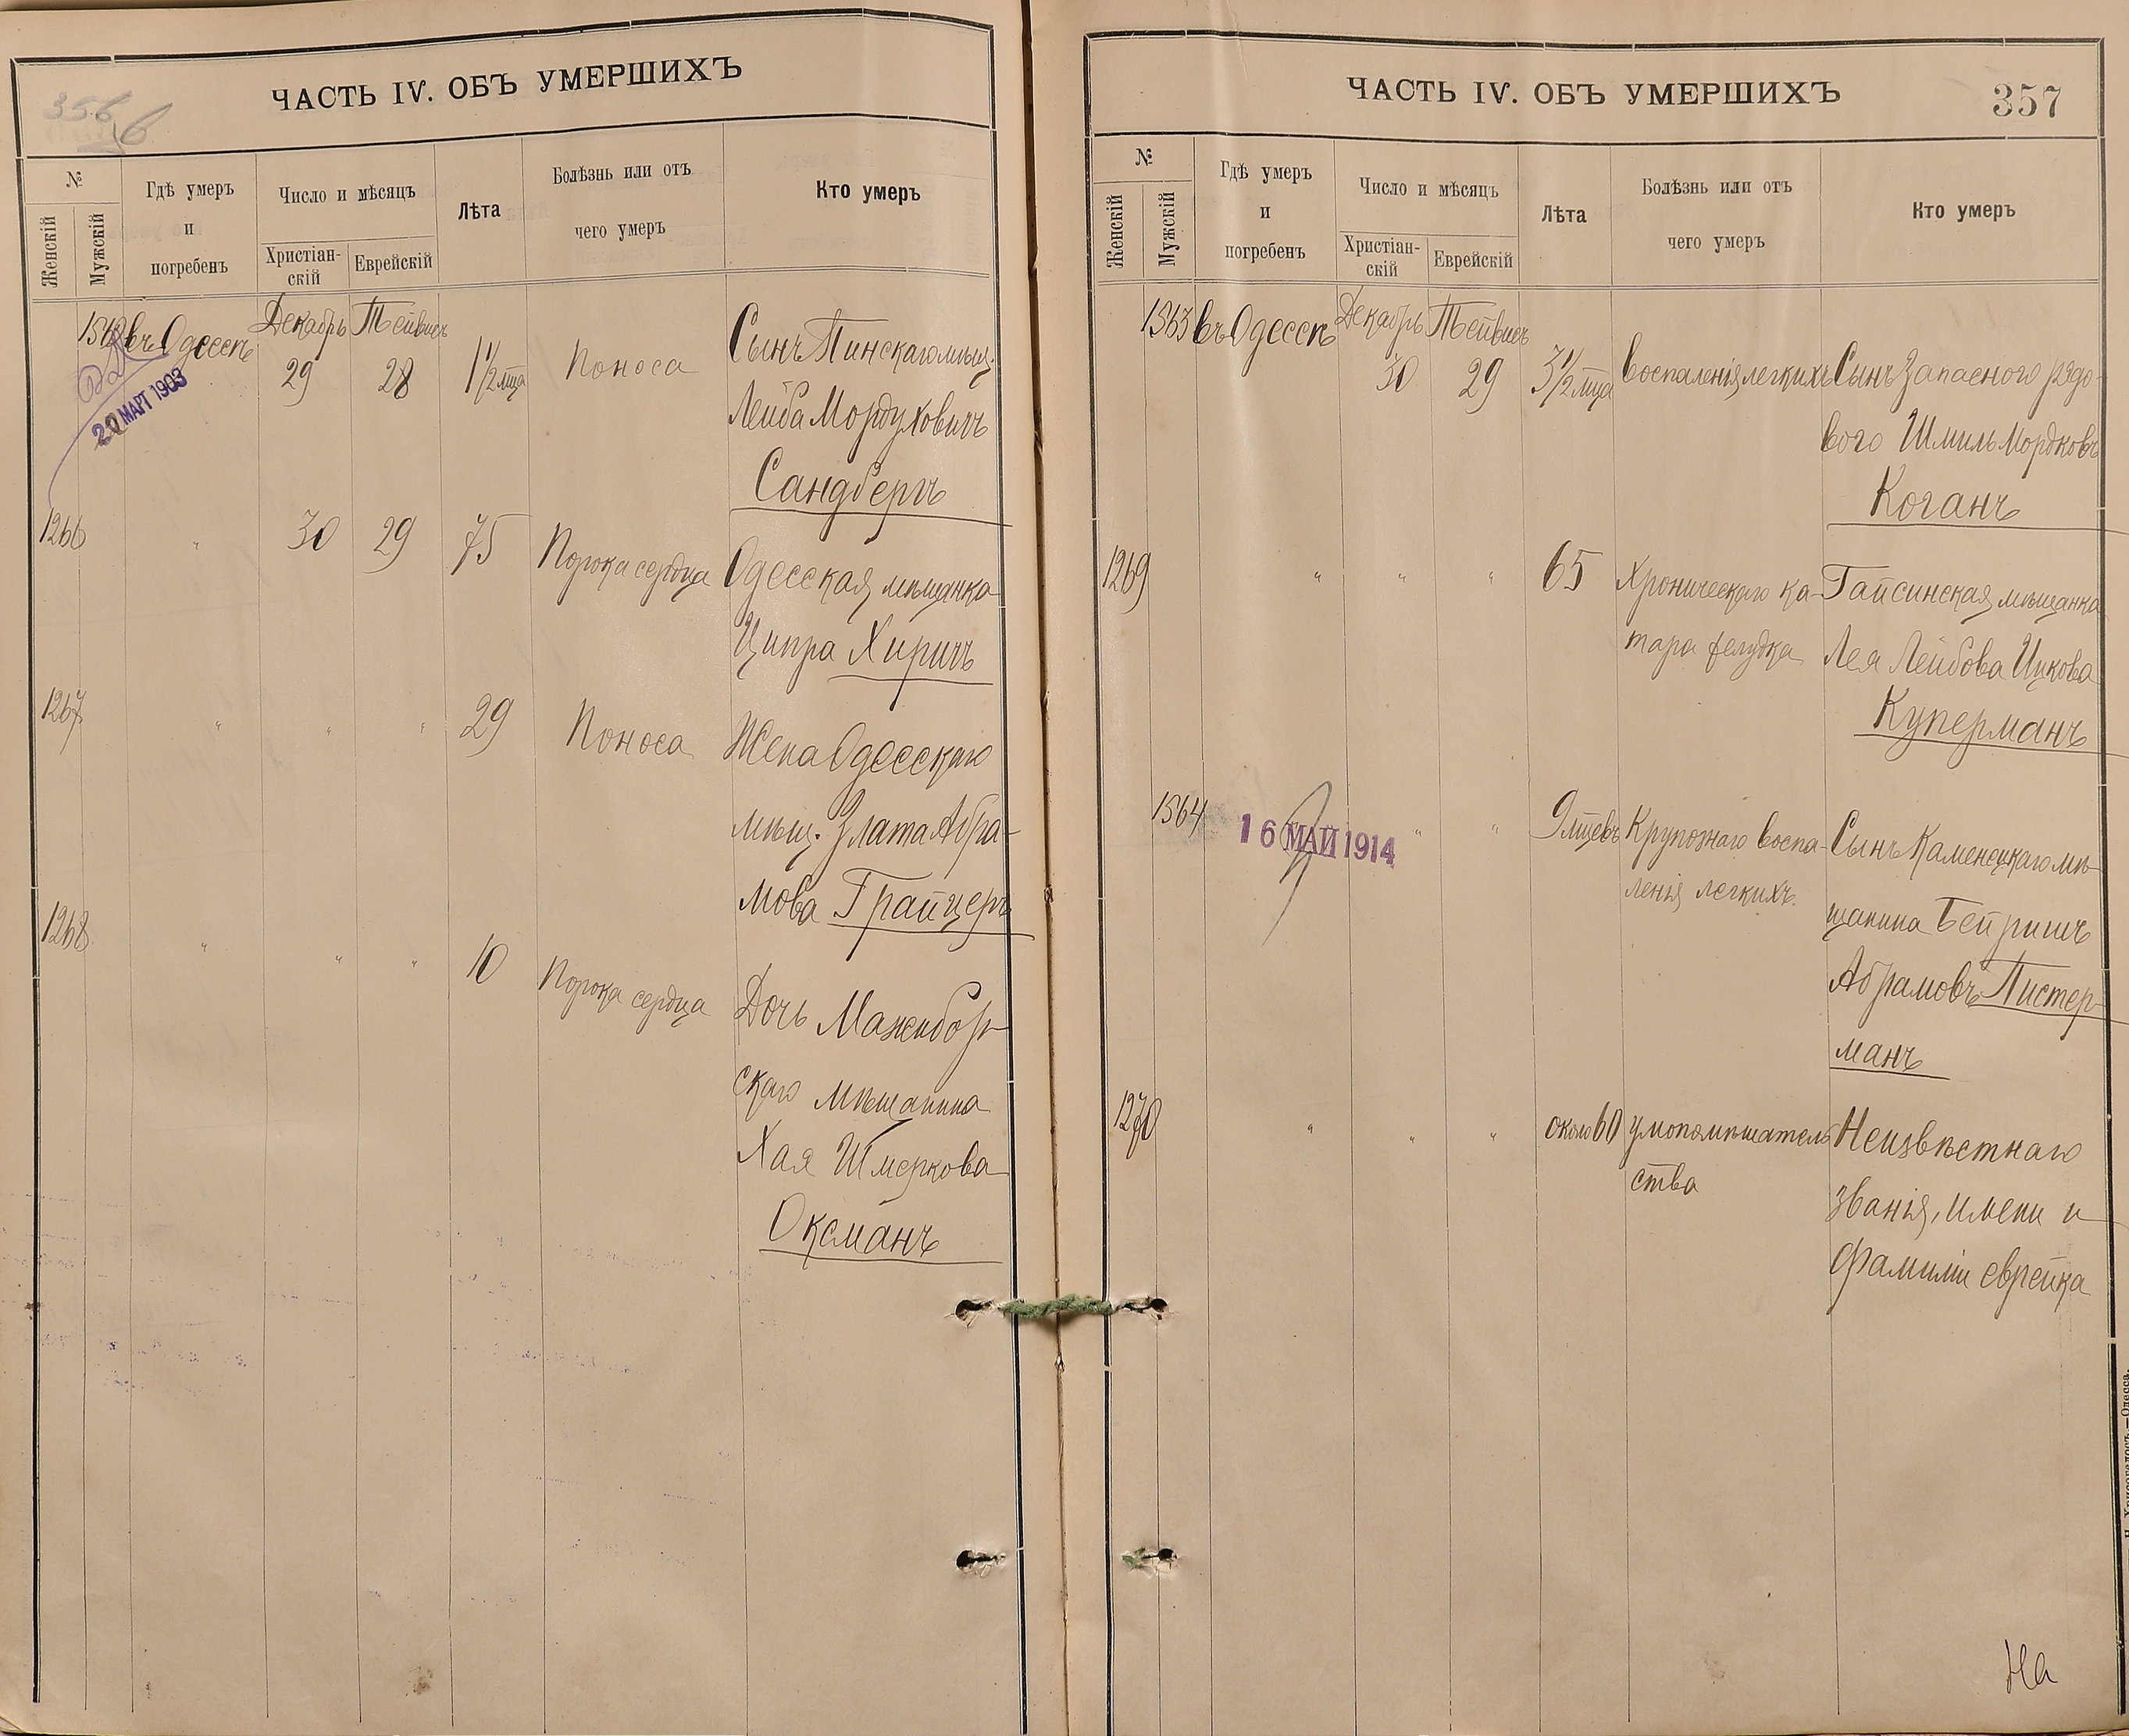 ЧАСТЬ IV. ОБЪ УМЕРШИХЪ
356
№
Женскій
Мужскій
Гдѣ умеръ
и
погребенъ
Число и мѣсяцъ
Христіан-
скій
Еврейскій
Лѣта
Болѣзнь или отъ
чего умеръ
Кто умеръ
въ Одессѣ
Декабрь
29
Тейвисъ
28
1½ мца
Поноса
Сынъ Пинскаго мѣщ.
Лейба Мордуховичъ
Сандбергъ
20 МАРТ 1903
1266
"
30
29
75
Порока сердца
Одесская мѣщанка
Ципра Хиричъ
1267
"
"
"
29
Поноса
Жена Одесскаго
мѣщ. Злата Абра-
мова Грайцеръ
1268
"
"
"
10
Порока сердца
Дочь Межибор-
скаго мѣщанина
Хая Шмеркова
Оксманъ
ЧАСТЬ IV. ОБЪ УМЕРШИХЪ
357
№
Женскій
Мужскій
Гдѣ умеръ
и
погребенъ
Число и мѣсяцъ
Христіан-
скій
Еврейскій
Лѣта
Болѣзнь или отъ
чего умеръ
Кто умеръ
1563
въ Одессѣ
Декабрь
30
Тейвисъ
29
3½ мца
Воспаленія легкихъ
Сынъ Запасного рядо-
вого Шмиль Мордковъ
Коганъ
1269
"
"
"
65
Хроническаго ка-
тара желудка
Гайсинская мѣщанка
Лея Лейбова Ицкова
Куперманъ
1564
16 МАЙ 1914
"
"
9 мцевъ
Крупознаго воспа-
ленія легкихъ.
Сынъ Каменецкаго мѣ-
щанина Бейришъ
Абрамовъ Пистер-
манъ
1270
"
"
"
около 60
умопомѣшатель
ства
Неизвѣстнаго
званія, имени и
фамиліи еврейка
На